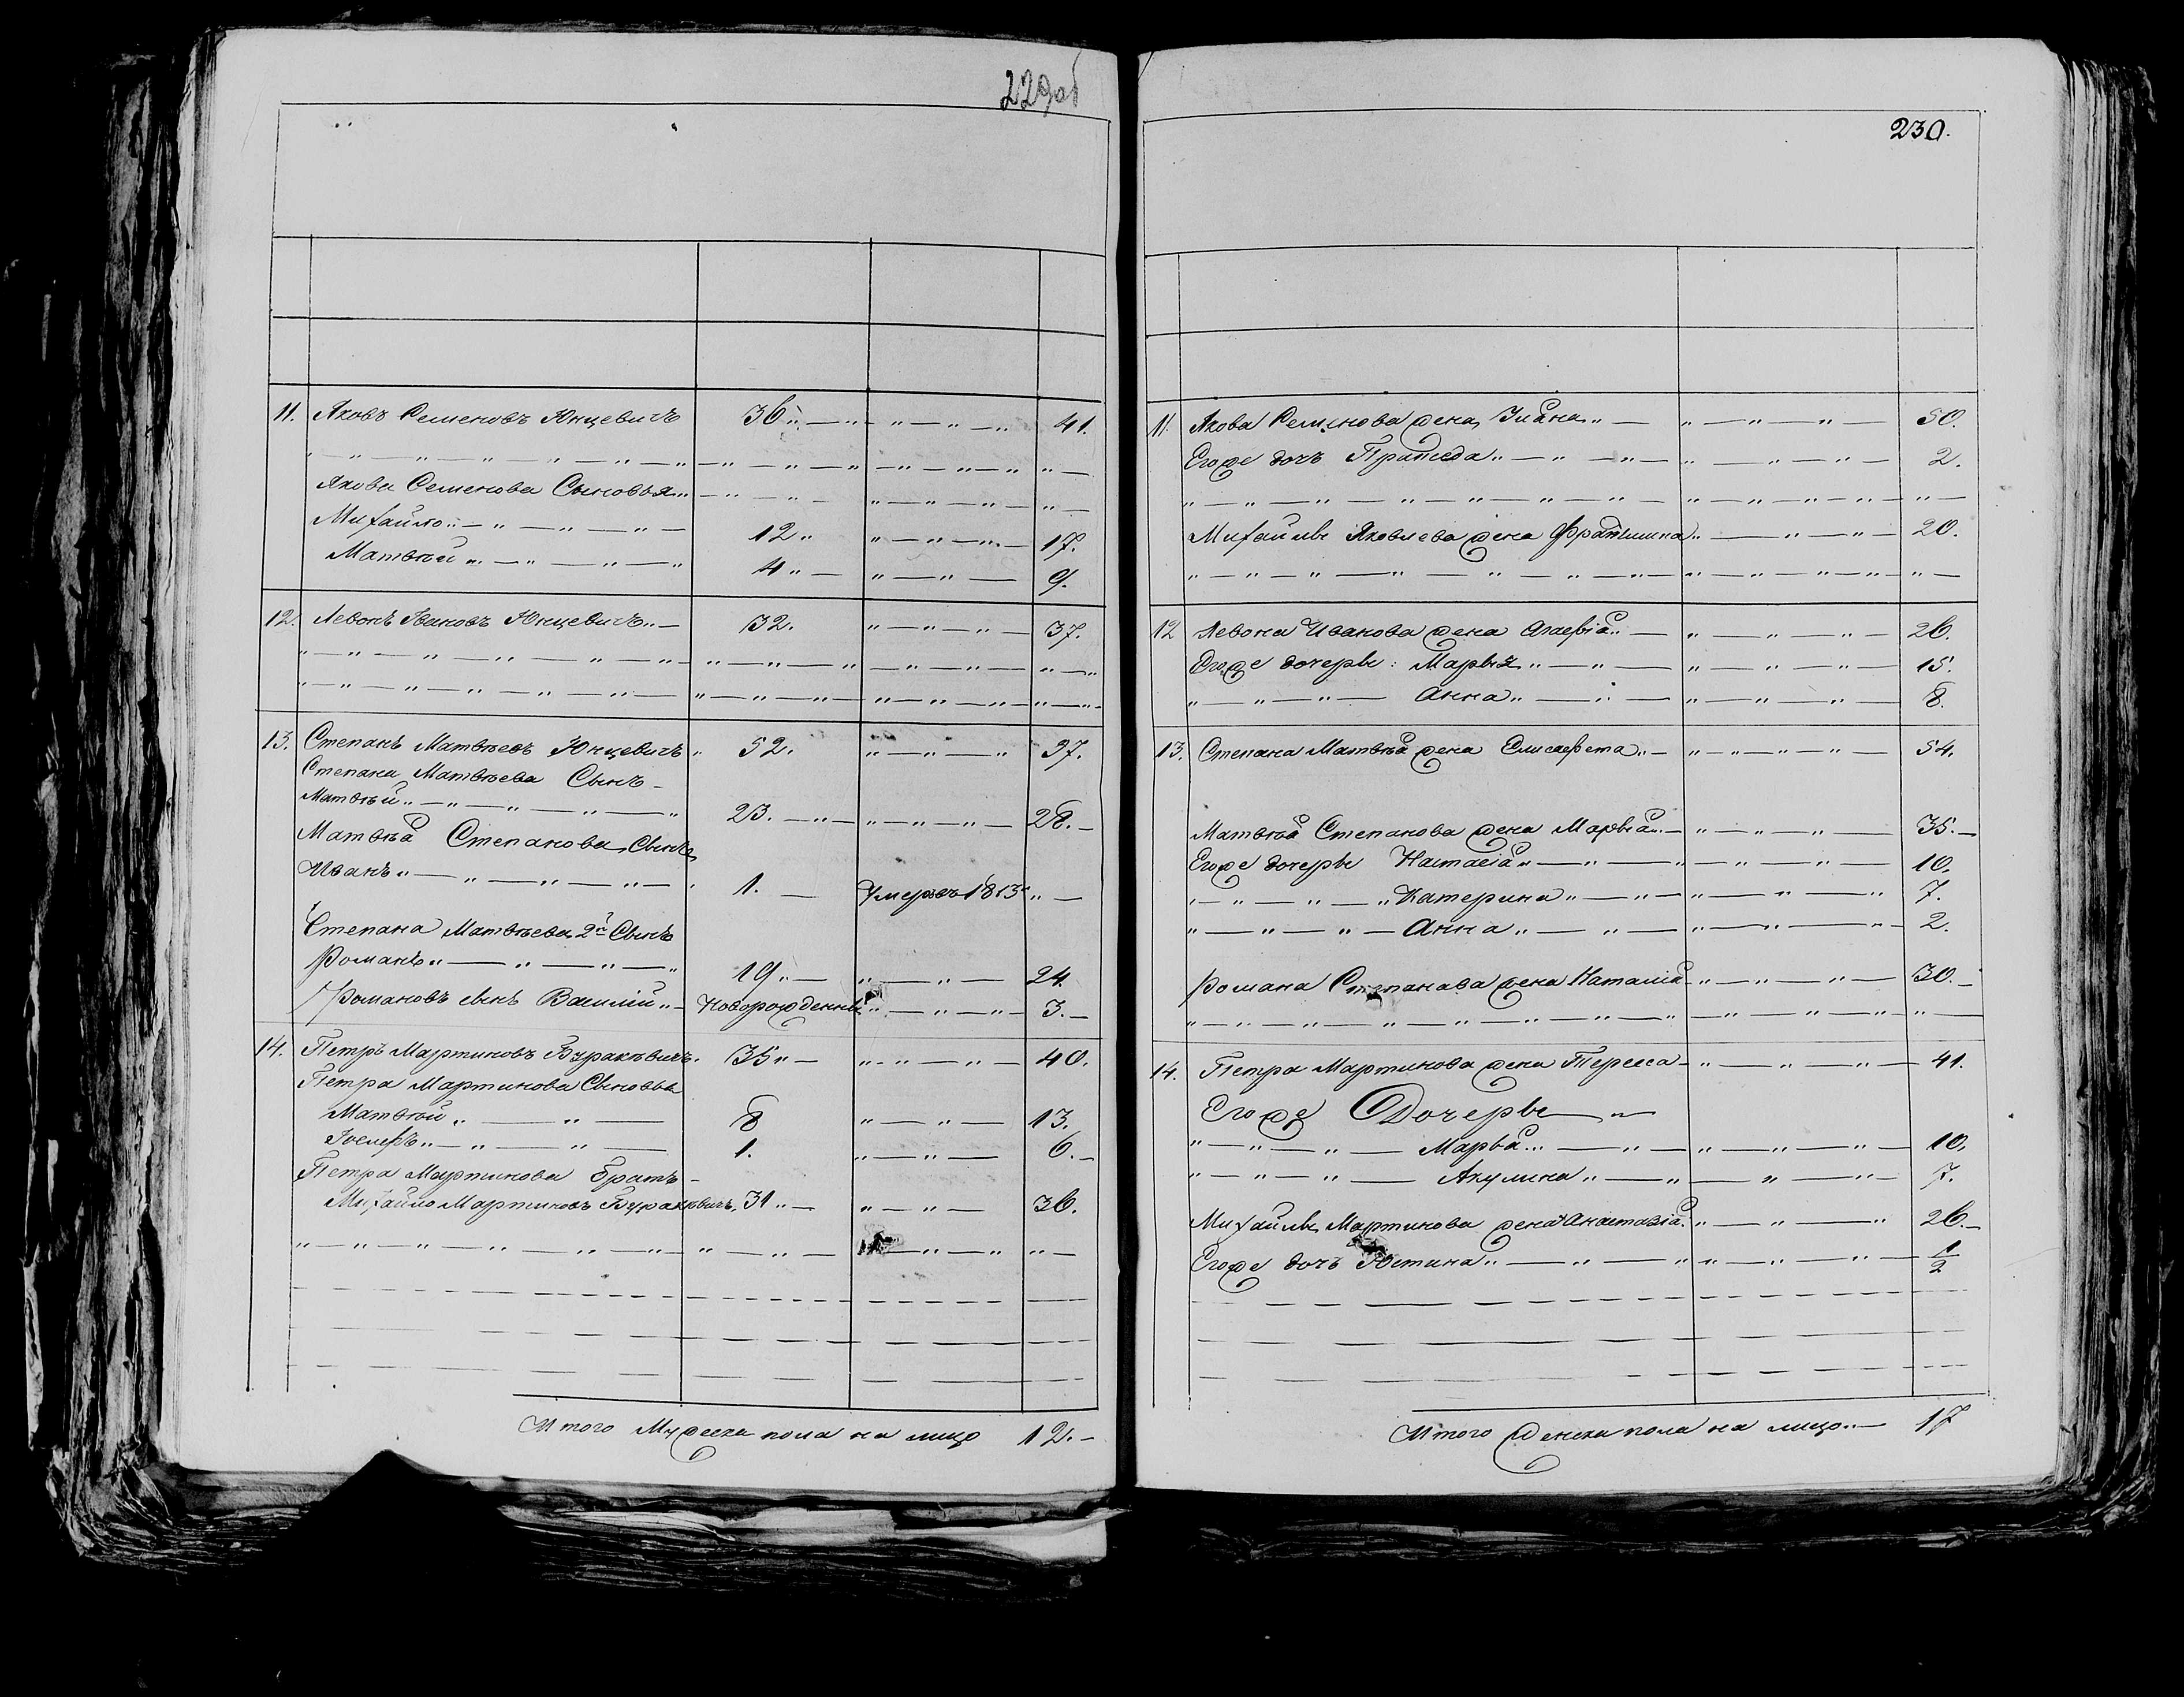 229об
11. Яковъ Семеновъ Юнцевичъ 36 41.
Якова Семенова Сыновья
Михайло 12 17.
Матвѣй 4 9.
12. Левонъ Ивановъ Юнцевичъ 32. 37.
13. Степанъ Матвѣевъ Юнцевичъ 52. 57.
Степана Матвѣева Сынъ
Матвѣй 23. 28.
Матвѣя Степанова Сынъ
Иванъ 1. Умеръ въ 1813
Степана Матвѣева 2й Сынъ
Романъ 19 24
Романовъ сынъ Василій Новорожденный 3.
14. Петръ Мартиновъ Буракѣвичъ 35 40.
Петра Мартинова Сыновья
Матвѣй 8 13.
Іосифъ 1. 6.
Петра Мартинова Братъ
Михайло Мартиновъ Буракѣвичъ 31 36.
Итого Мужеска пола на лицо 12.
230.
11. Якова Семенова жена 50.
Егоже дочь 2.
Михайлы Яковлева жена 20.
12 Левона Иванова жена Агафія 26.
Егоже дочеры: Марья 15.
Анна 8.
13. Степана Матвѣя жена Елисавета 54.
Матвѣя Степанова жена Марья 35.
Егоже дочеры Настасія 10.
Катерина 7.
Анна 2.
Романа Степанава жена Наталія 30.
14. Петра Мартинова жена Тересса 41.
Егоже Дочеры
Марья 10.
Акулина 7.
Михайлы Мартинова жена Анастазія 26.
Егоже дочь Юстина 1/2
Итого Женска пола на лицо 17